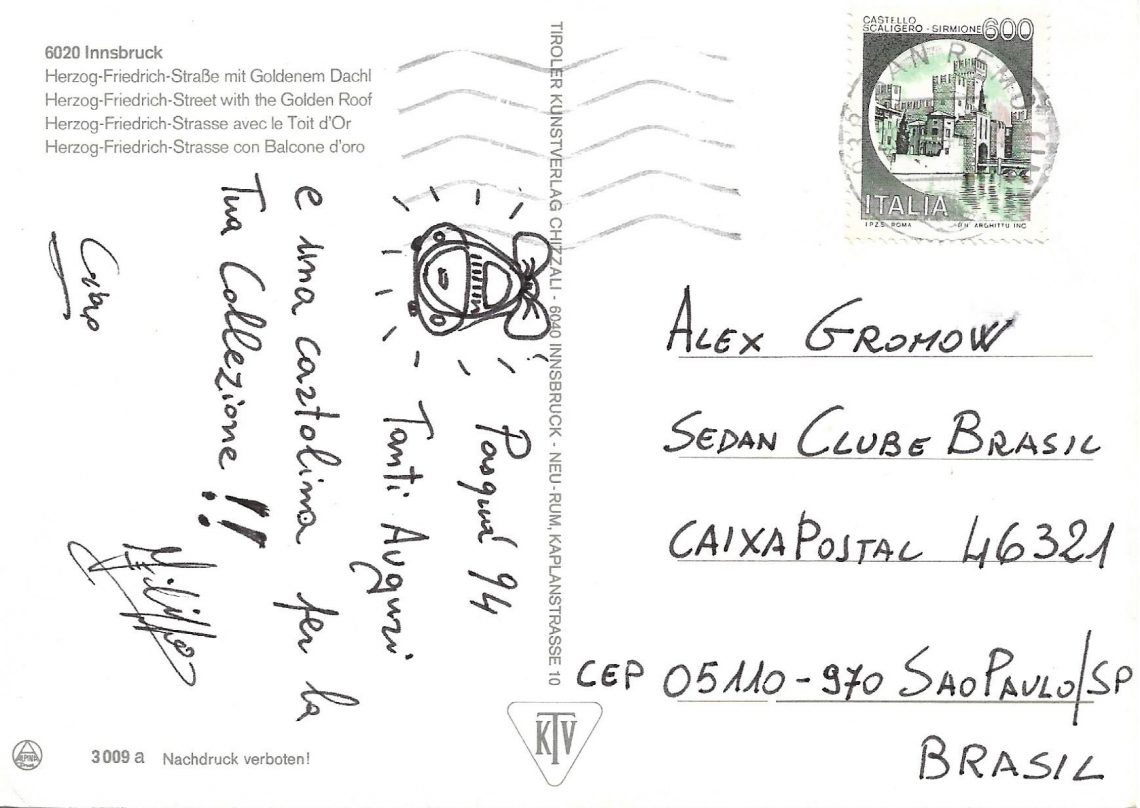 6020 Innsbruck
Herzog-Friedrich-Straße mit Goldenem Dachl
Herzog-Friedrich-Street with the Golden Roof
Herzog-Friedrich-Strasse avec le Toit d'Or
Herzog-Friedrich-Strasse con Balcone d'oro
Pasqua 94
Tanti Auguri
e una cartolina per la
Tua Collezione!!
Ciao
Filippo
TIROLER KUNSTVERLAG CHIZZALI - 6040 INNSBRUCK - NEU-RUM, KAPLANSTRASSE 10
CASTELLO
SCALIGERO - SIRMIONE 600
ITALIA
I.P.Z.S. ROMA
SAN REMO
ALEX GROMOW
SEDAN CLUBE BRASIL
CAIXA POSTAL 46321
CEP 05110-970 SAO PAULO/SP
BRASIL
KTV
ALPINA
3009 a Nachdruck verboten!